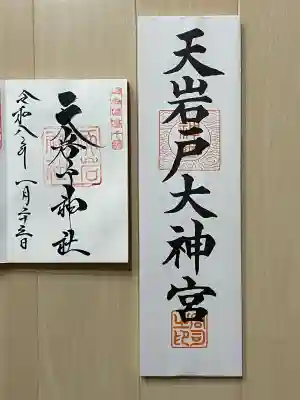 天岩戸大神宮
天岩戸神社
令和八年一月二十三日